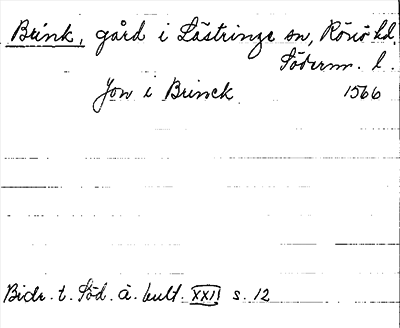 Brink, gård i Lästringe sn, Rönö hd.
Söderm. l.
Jon i Brinck 1566
Bidr. t. Söd. ä. kult. XXII s. 12